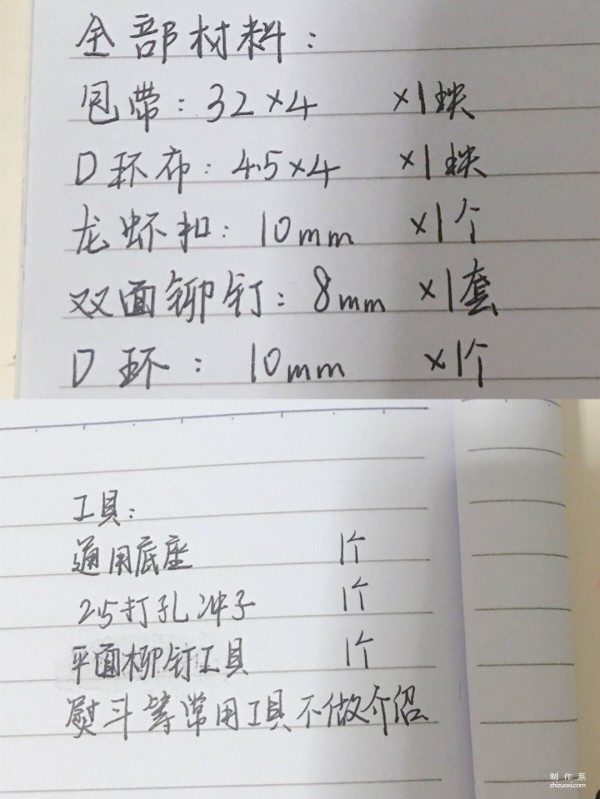 全部材料：
包带：32×4 ×1块
D环布：4.5×4 ×1块
龙虾扣：10mm ×1个
双面铆钉：8mm ×1套
D环：10mm ×1个
工具：
通用底座 1个
25打孔冲子 1个
平面柳钉工具 1个
熨斗等常用工具不做介绍
制作系
zhizuoxi.com